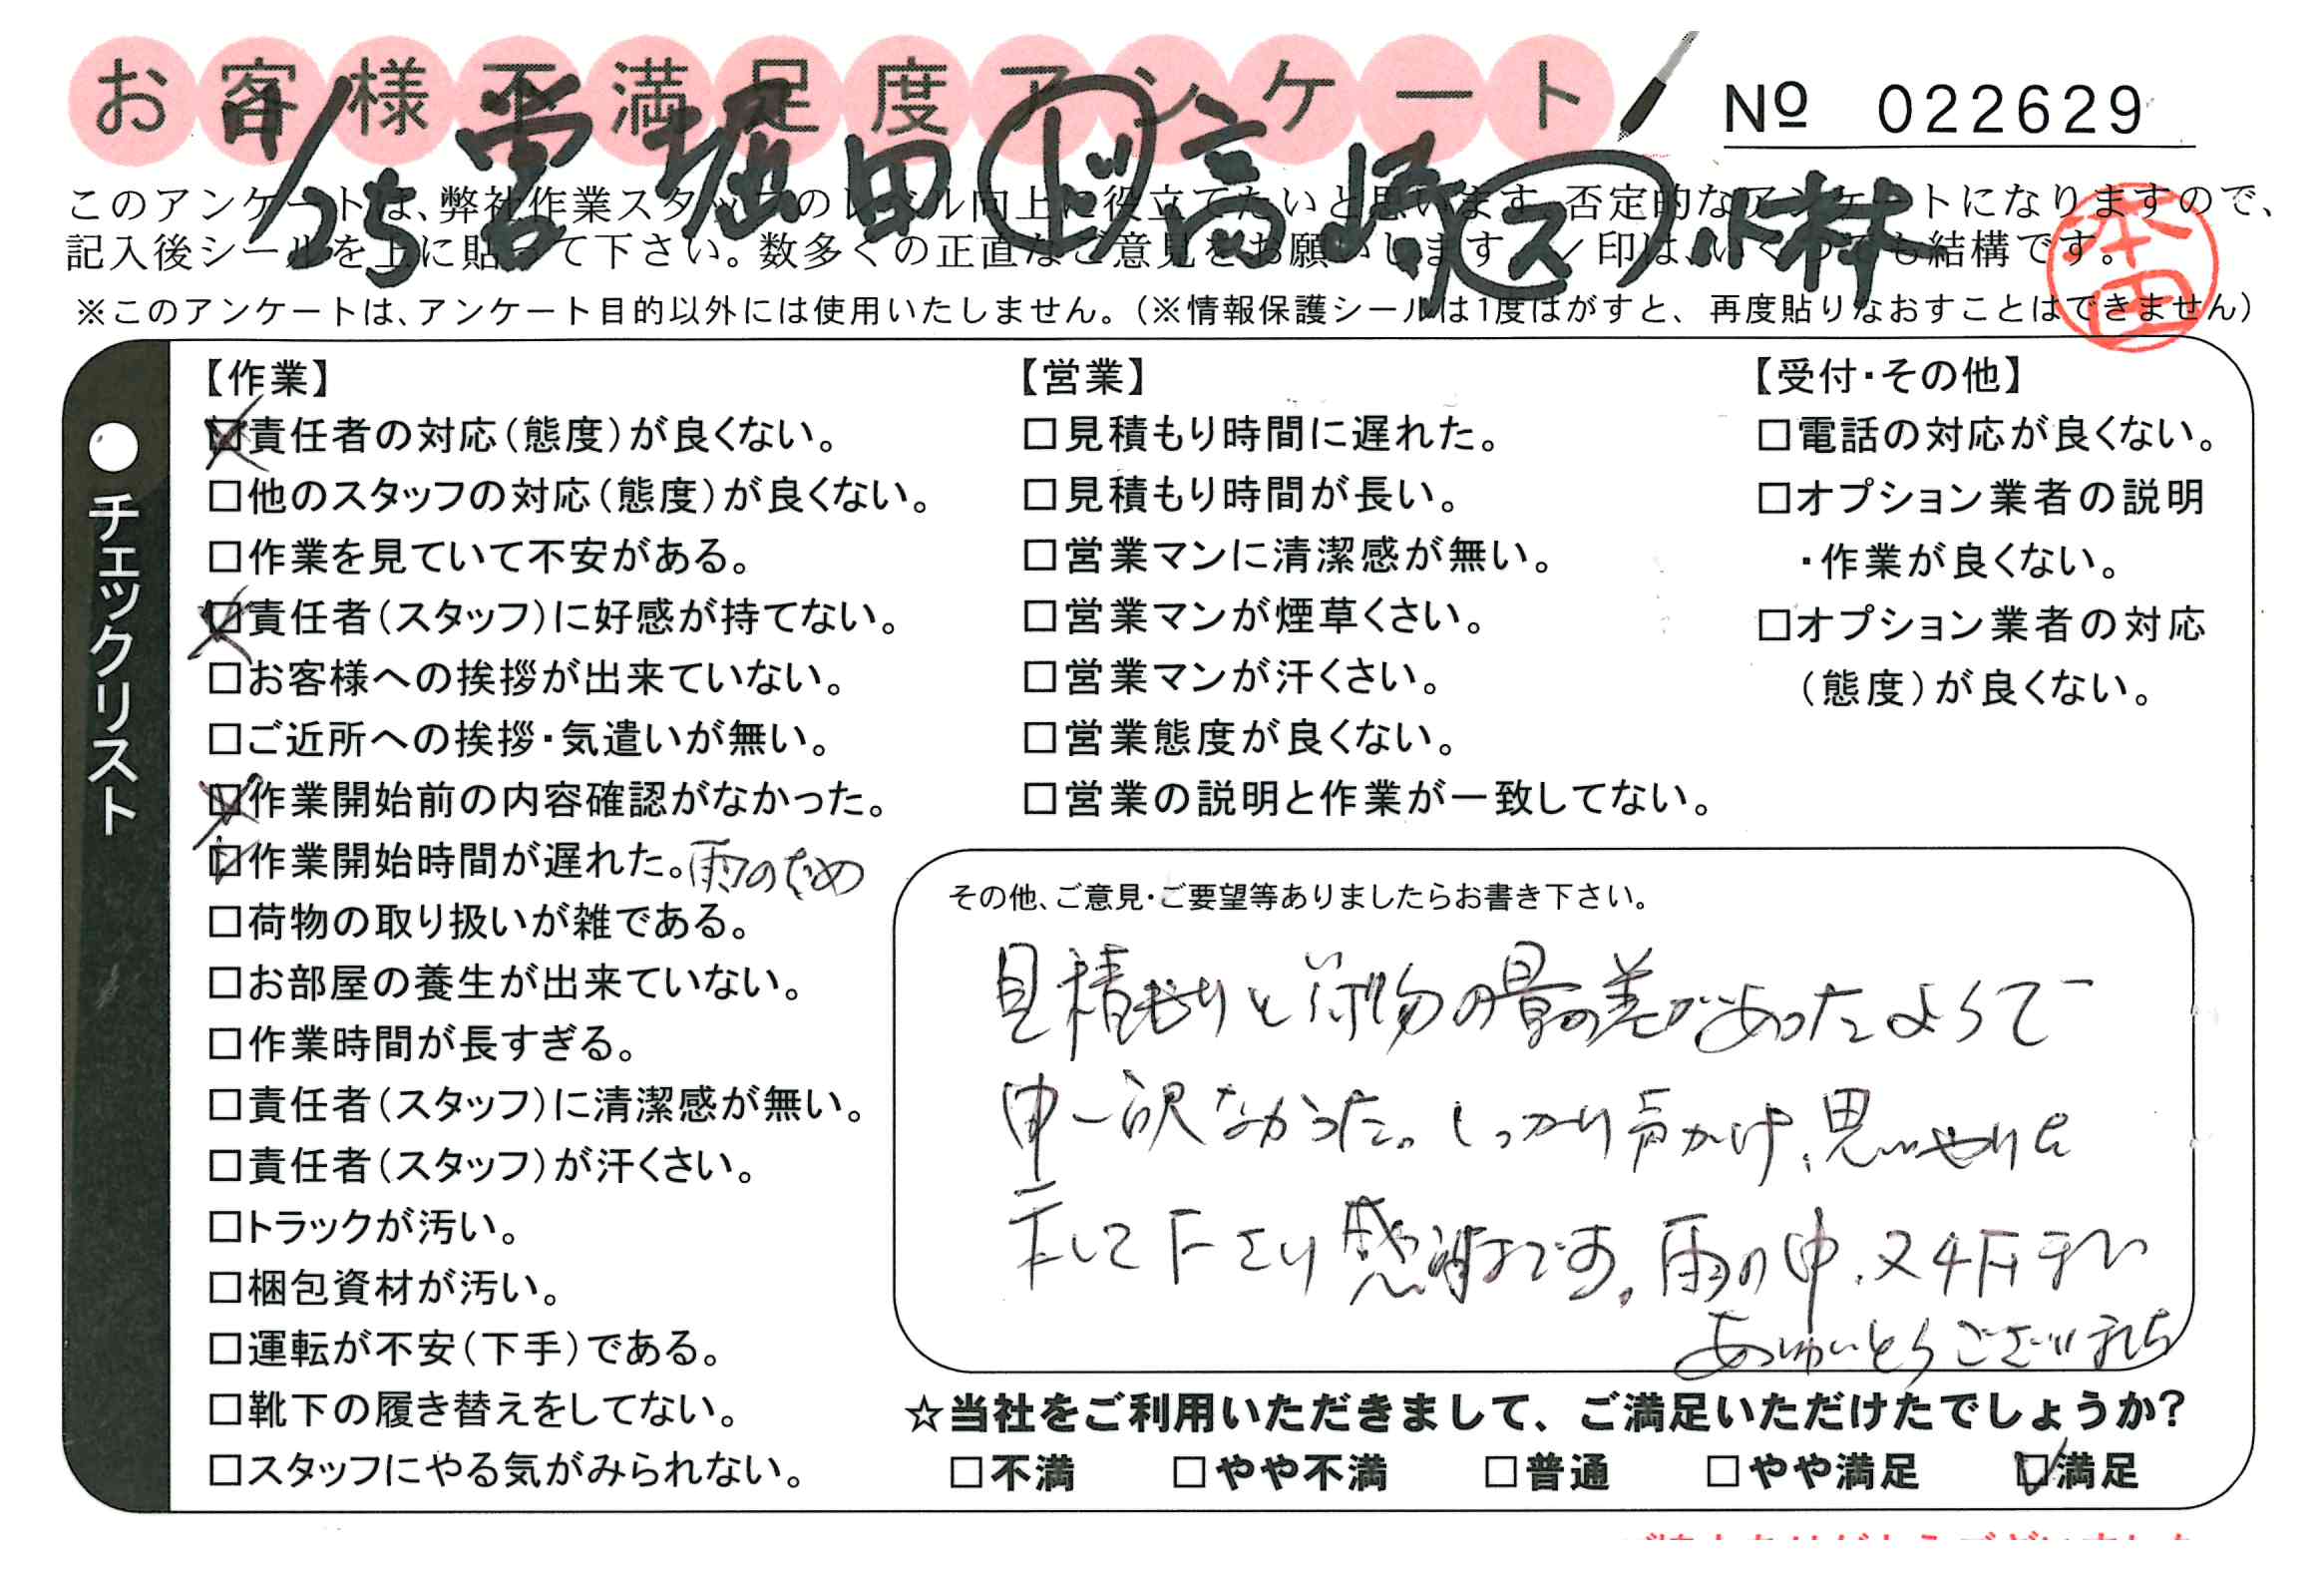 お客様不満足度アンケート
№ 022629
11/25 営 堀田 ド 高崎 ス 小林
本田
このアンケートは、弊社作業スタッフのレベル向上に役立てたいと思います。否定的なアンケートになりますので、
記入後シールを上に貼って下さい。数多くの正直なご意見をお願いします。✓印は、いくつでも結構です。
※このアンケートは、アンケート目的以外には使用いたしません。(※情報保護シールは1度はがすと、再度貼りなおすことはできません)
●チェックリスト
【作業】
責任者の対応(態度)が良くない。
□他のスタッフの対応(態度)が良くない。
□作業を見ていて不安がある。
責任者(スタッフ)に好感が持てない。
□お客様への挨拶が出来ていない。
□ご近所への挨拶・気遣いが無い。
作業開始前の内容確認がなかった。
作業開始時間が遅れた。雨のため
□荷物の取り扱いが雑である。
□お部屋の養生が出来ていない。
□作業時間が長すぎる。
□責任者(スタッフ)に清潔感が無い。
□責任者(スタッフ)が汗くさい。
□トラックが汚い。
□梱包資材が汚い。
□運転が不安(下手)である。
□靴下の履き替えをしてない。
□スタッフにやる気がみられない。
【営業】
□見積もり時間に遅れた。
□見積もり時間が長い。
□営業マンに清潔感が無い。
□営業マンが煙草くさい。
□営業マンが汗くさい。
□営業態度が良くない。
□営業の説明と作業が一致してない。
【受付・その他】
□電話の対応が良くない。
□オプション業者の説明
・作業が良くない。
□オプション業者の対応
(態度)が良くない。
その他、ご意見・ご要望等ありましたらお書き下さい。
見積もりと荷物の量の差があったようで
申し訳なかった。しっかり声かけ、思いやりを
示して下さり感謝です。雨の中、又4F手伝い
ありがとうございました
☆当社をご利用いただきまして、ご満足いただけたでしょうか?
□不満 □やや不満 □普通 □やや満足 ☑満足